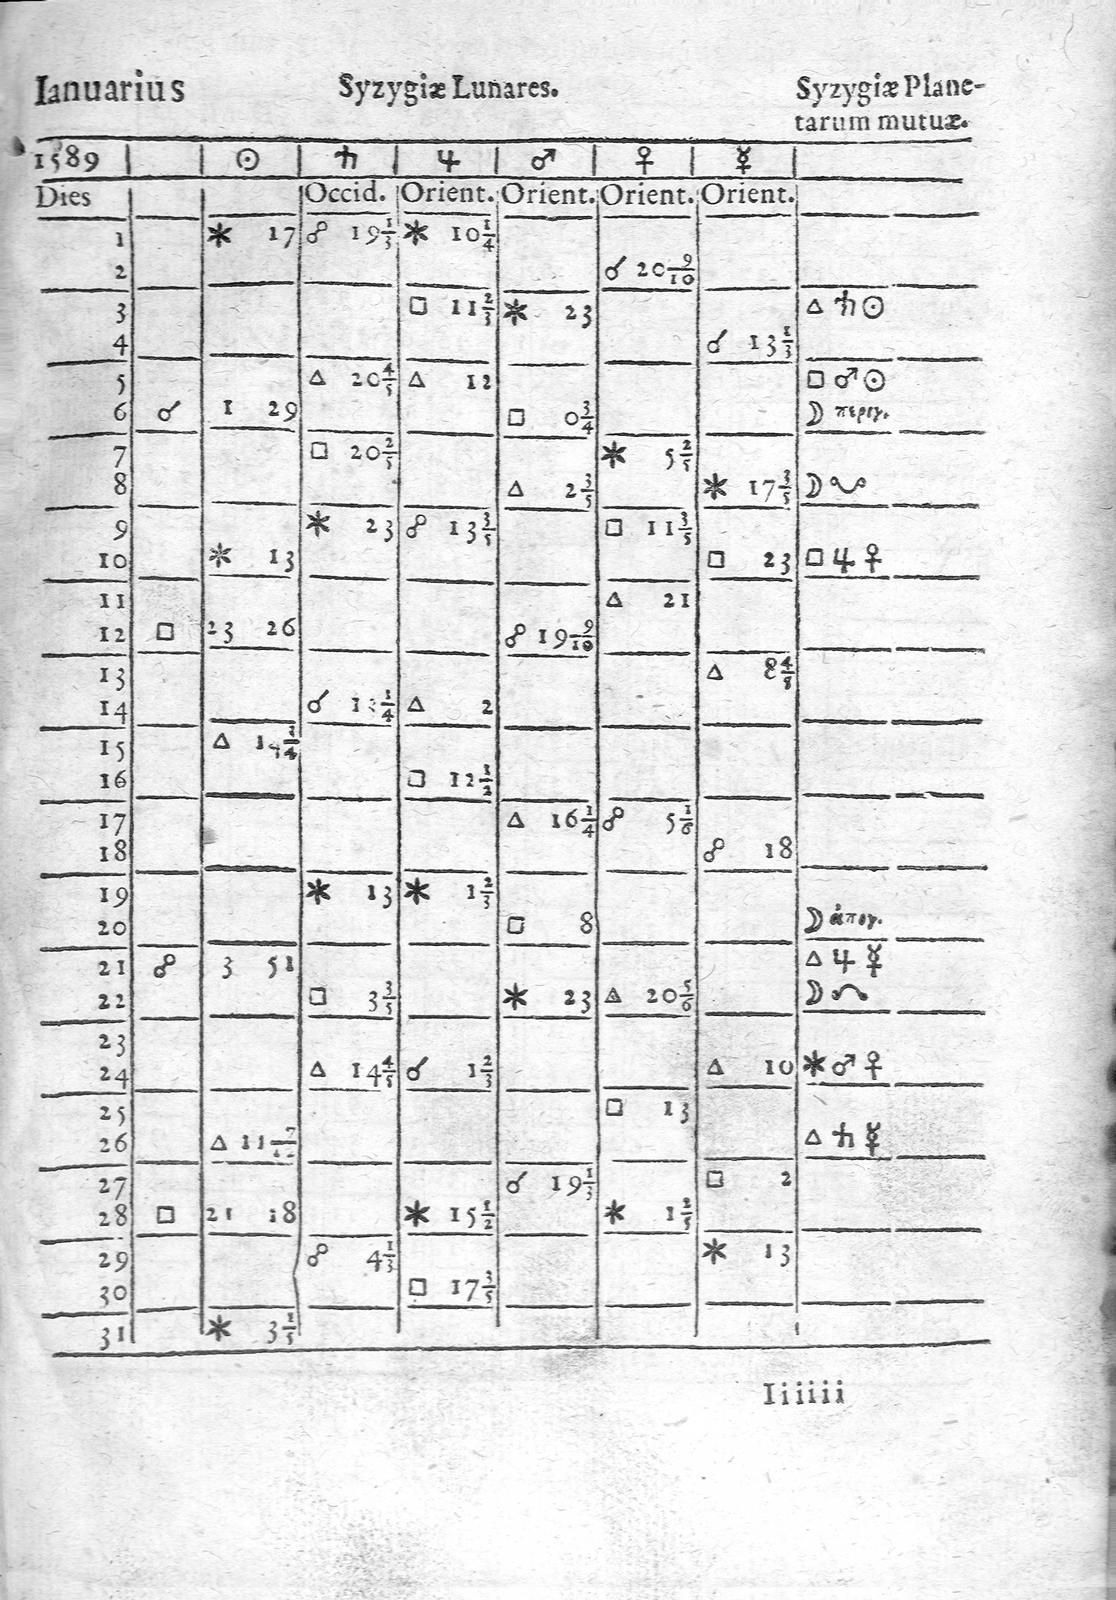 Ianuarius Syzygiæ Lunares. Syzygiæ Plane-
tarum mutuæ.
1589 ☉ ♄ ♃ ♂ ♀ ☿
Dies Occid. Orient. Orient. Orient. Orient.
1 ⚹ 17 ☍ 19 1/3 ⚹ 10 1/4
2 ☌ 20 9/10
3 □ 11 2/3 ⚹ 23 △ ♄ ☉
4 ☌ 13 1/3
5 △ 20 4/5 △ 12 □ ♂ ☉
6 ☌ 1 29 □ 0 3/4 ☽ περιγ.
7 □ 20 2/5 ⚹ 5 2/5
8 △ 2 3/5 ⚹ 17 3/5 ☽ ☋
9 ⚹ 23 ☍ 13 3/5 □ 11 3/5
10 ⚹ 13 □ 23 □ ♃ ♀
11 △ 21
12 □ 23 26 ☍ 19 9/10
13 △ 8
14 ☌ △ 2
15 △
16 □ 12 1/2
17 △ 16 1/4 ☍ 5 1/6
18 ☍ 18
19 ⚹ 13 ⚹ 1 2/3
20 □ 8 ☽ ἀπογ.
21 ☍ 3 51 △ ♃ ☿
22 □ 3 3/5 ⚹ 23 △ 20 5/6 ☽ ☊
23
24 △ 14 4/5 ☌ 1 2/3 △ 10 ⚹ ♂ ♀
25 □ 13
26 △ 11 △ ♄ ☿
27 ☌ 19 1/3 □ 2
28 □ 21 18 ⚹ 15 1/2 ⚹ 1 2/5
29 ☍ 4 1/3 ⚹ 13
30 □ 17 3/5
31 ⚹ 3
Iiiiii